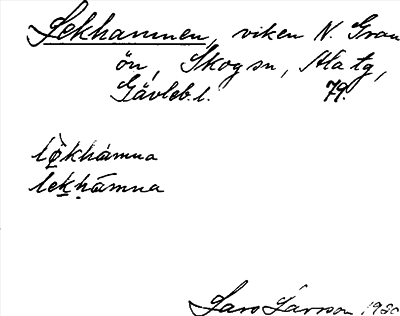 Lekhamnen, viken N. Gran
ön, Skog sn, Ala tg,
Gävleb. l. 79.
lø̀khámna
lekhāmna
Lars Larsson 1920